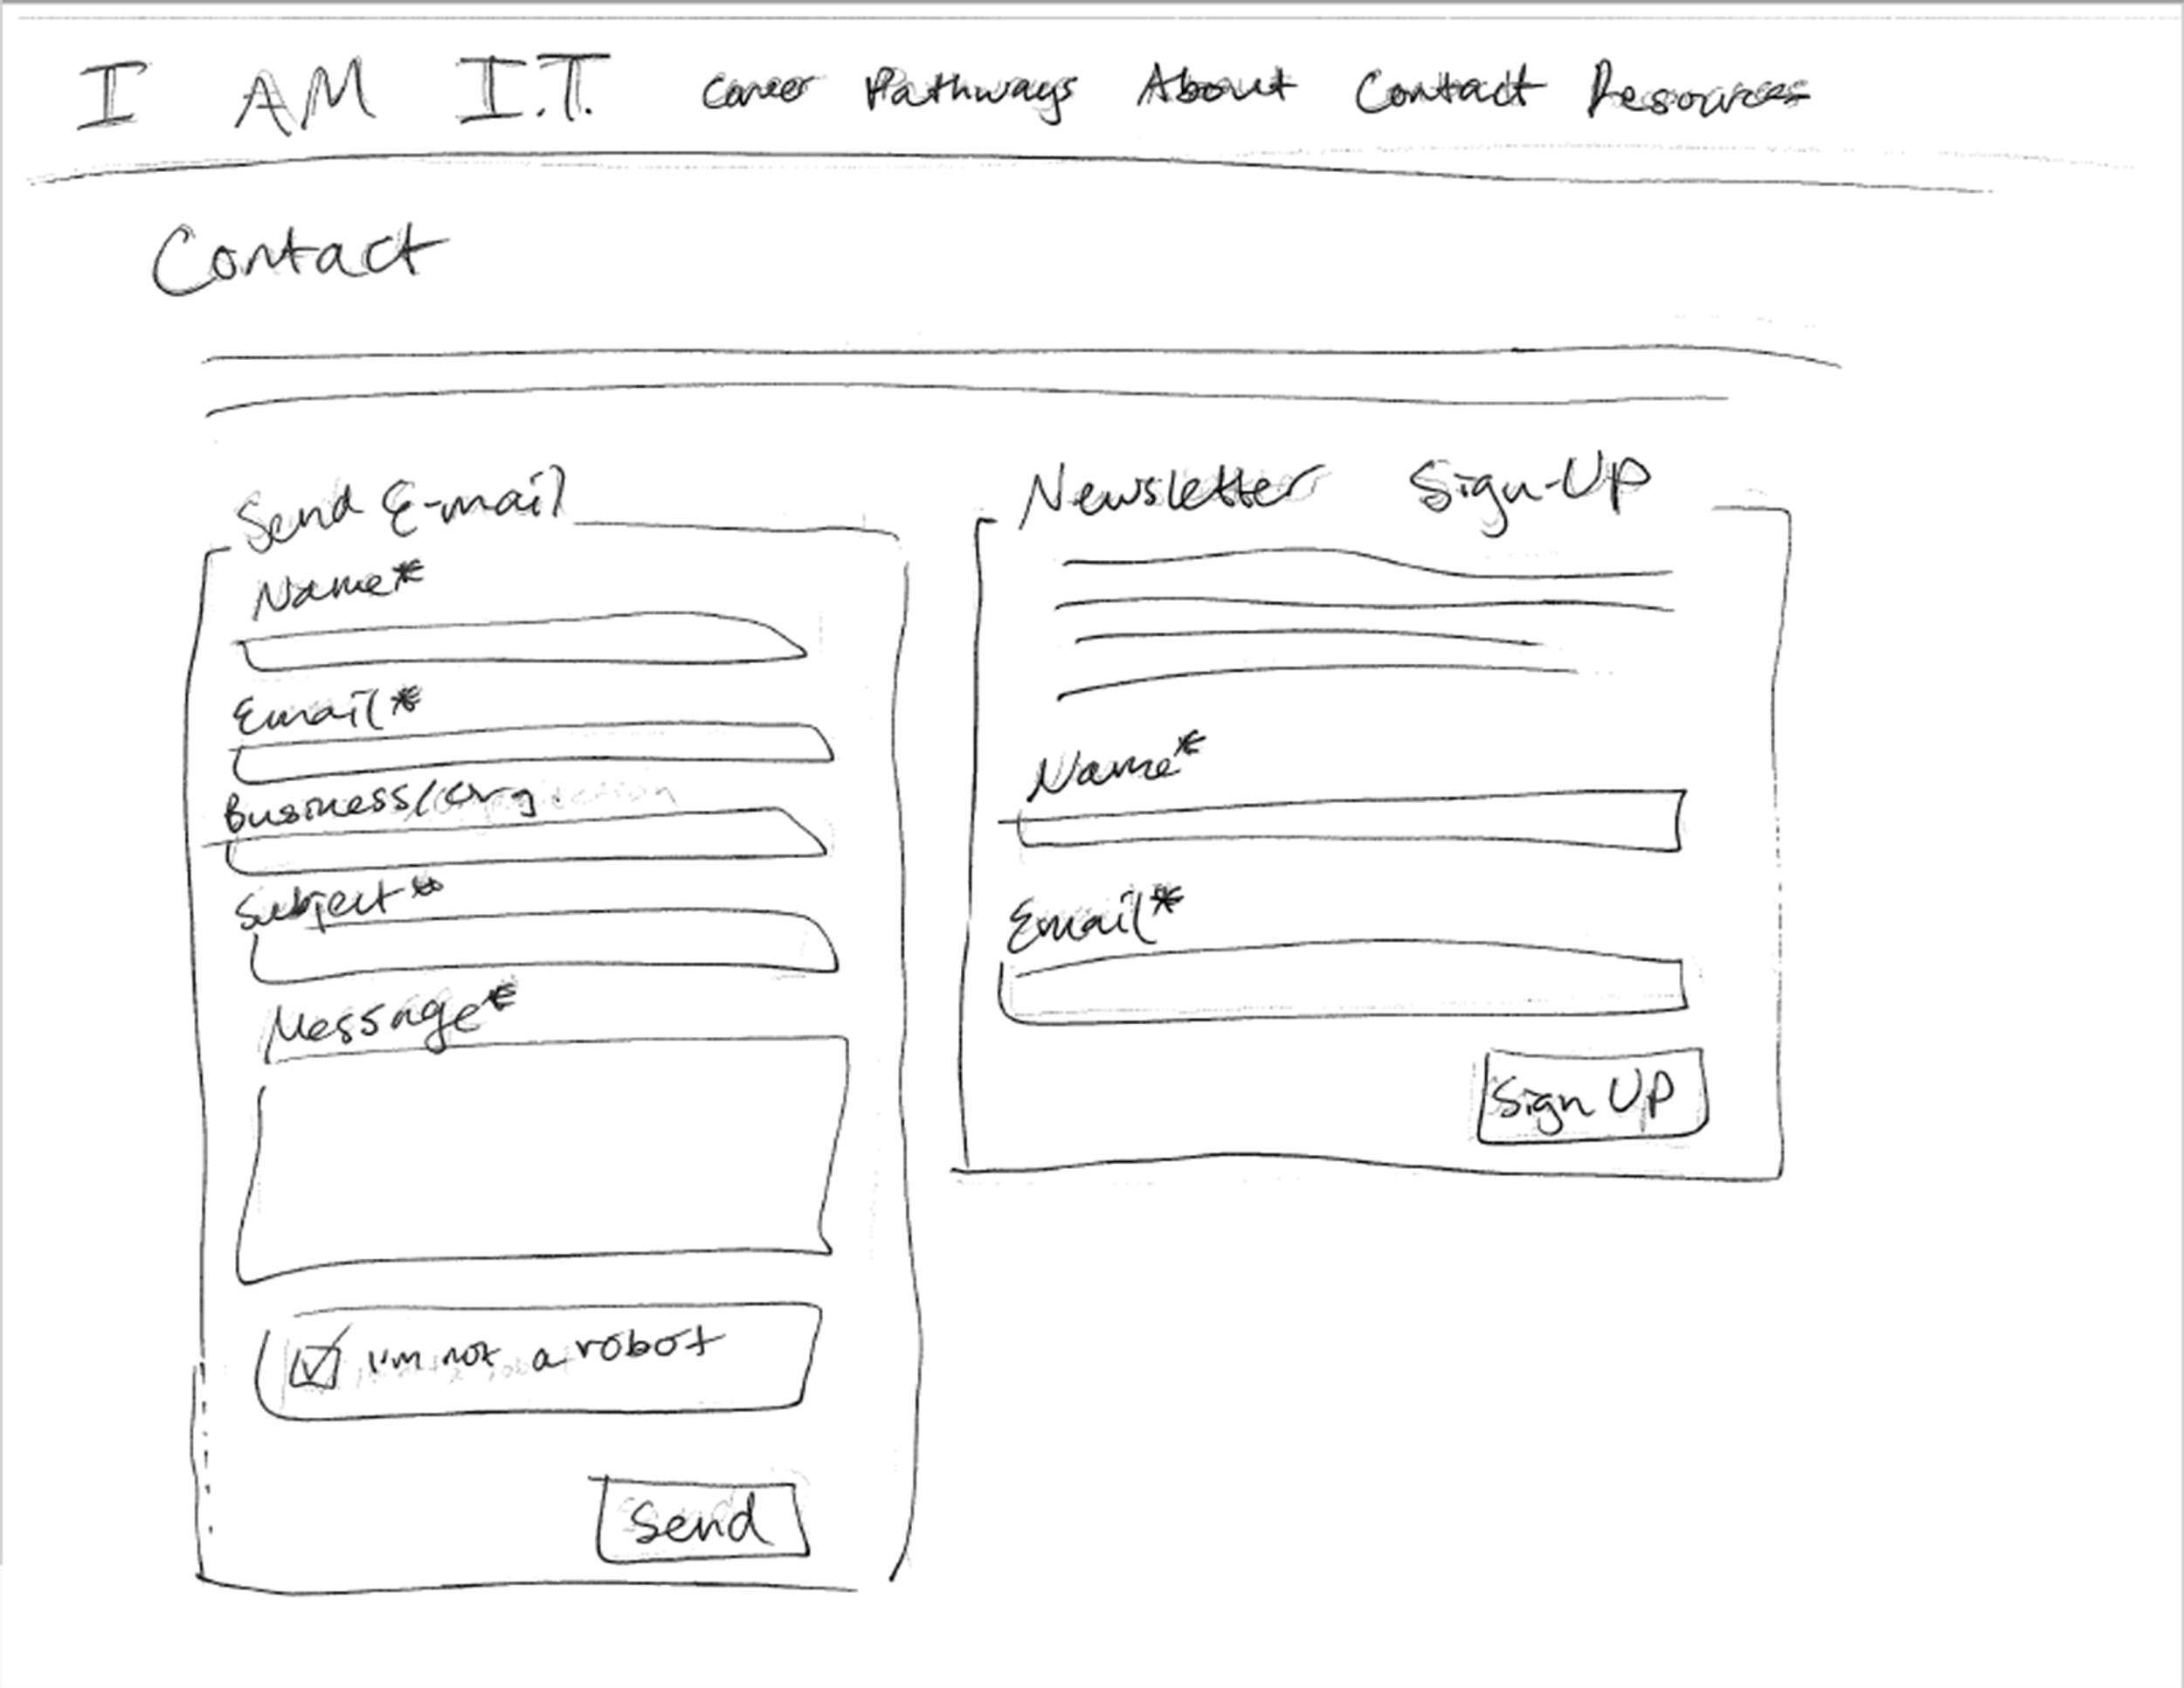 I AM I.T. Career Pathways About Contact Resources
Contact
Send E-mail
Name*
Email*
Business/Org
Subject*
Message*
I'm not a robot
Send
Newsletter Sign-Up
Name*
Email*
Sign UP